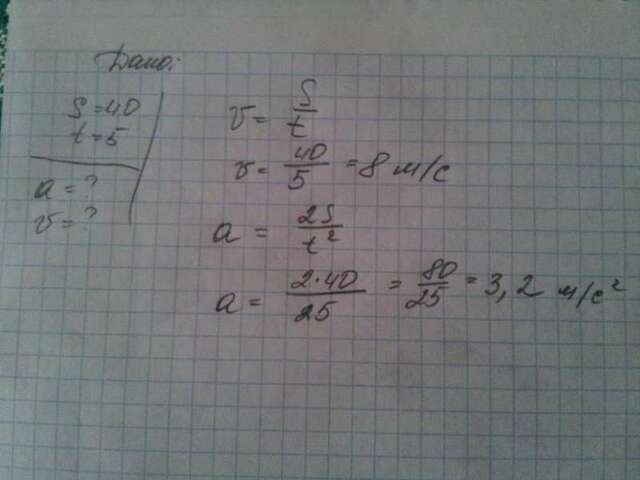 Дано:
S = 40
t = 5
a = ?
v = ?
v = S/t
v = 40/5 = 8 м/с
a = 2S/t²
a = 2·40/25 = 80/25 = 3,2 м/с²